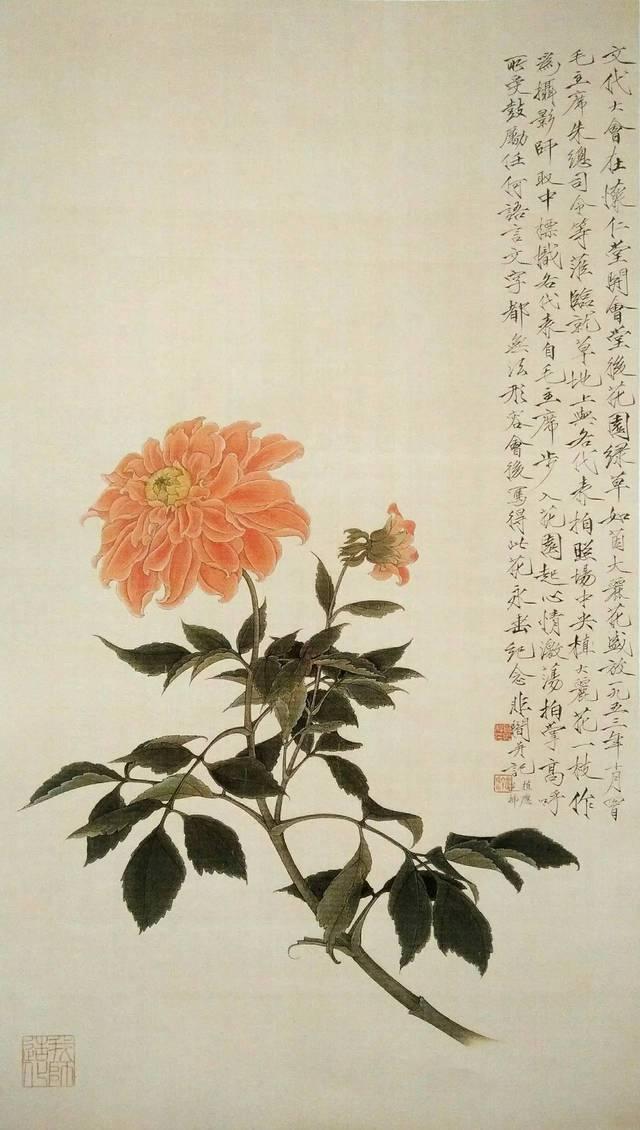 文代大會在懷仁堂開會堂後花園綠草如茵大麗花盛放一九五三年十月
毛主席朱總司令等蒞臨就草地上與各代表拍照場中央植大麗花一枝作
為攝影師取中標幟各代表自毛主席步入花園起心情激蕩拍掌高呼
所受鼓勵任何語言文字都無法形容會後寫得此花永垂紀念非闇并記
我師造化